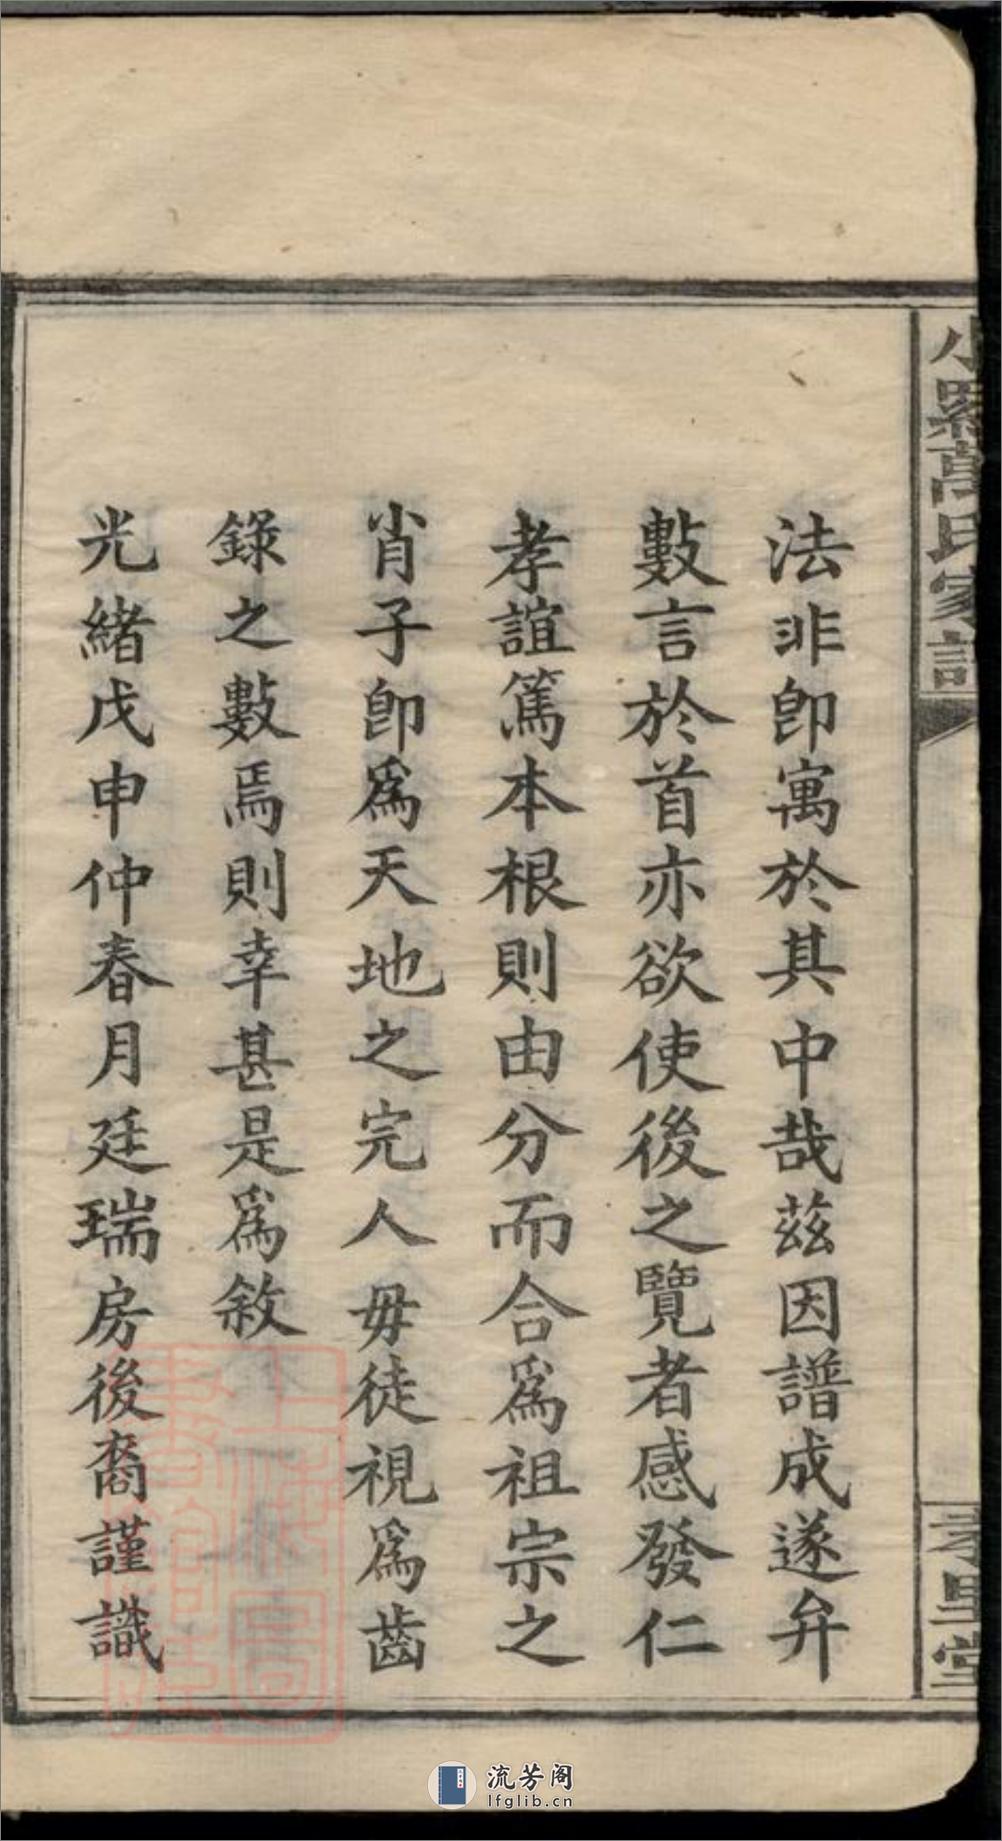 小羅萬氏家譜
孝思堂
法非卽寓於其中哉茲因譜成遂弁
數言於首亦欲使後之覽者感發仁
孝誼篤本根則由分而合爲祖宗之
肖子卽爲天地之完人毋徒視爲齒
錄之數焉則幸甚是爲敘
光緒戊申仲春月廷瑞房後裔謹識
流芳阁
lfglib.cn